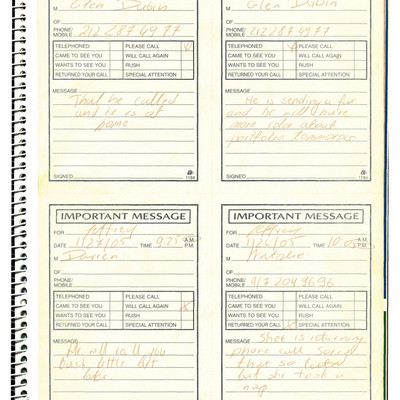 M Glen Dubin
OF
PHONE/
MOBILE 212 287 4977
TELEPHONED PLEASE CALL
CAME TO SEE YOU WILL CALL AGAIN
WANTS TO SEE YOU RUSH
RETURNED YOUR CALL SPECIAL ATTENTION
MESSAGE
That he called
and he is at
home
SIGNED
1184
M Glen Dubin
OF
PHONE/
MOBILE 212 287 4977
TELEPHONED PLEASE CALL
CAME TO SEE YOU WILL CALL AGAIN
WANTS TO SEE YOU RUSH
RETURNED YOUR CALL SPECIAL ATTENTION
MESSAGE
He is sending a fax
and he will have
more color about
portfolio tomorrow
SIGNED
1184
IMPORTANT MESSAGE
FOR Jeffrey
DATE 1/27/05 TIME 9:25 A.M.
P.M.
M Darren
OF
PHONE/
MOBILE
TELEPHONED PLEASE CALL
CAME TO SEE YOU WILL CALL AGAIN X
WANTS TO SEE YOU RUSH
RETURNED YOUR CALL SPECIAL ATTENTION
MESSAGE
He will call you
back little bit
later
IMPORTANT MESSAGE
FOR Jeffrey
DATE 1/26/05 TIME 10:05 A.M.
P.M.
M
OF
PHONE/
MOBILE 917 204 9696
TELEPHONED PLEASE CALL
CAME TO SEE YOU WILL CALL AGAIN
WANTS TO SEE YOU RUSH
RETURNED YOUR CALL X SPECIAL ATTENTION
MESSAGE
She is returning
phone call Sorry
that so later
but she took a
nap